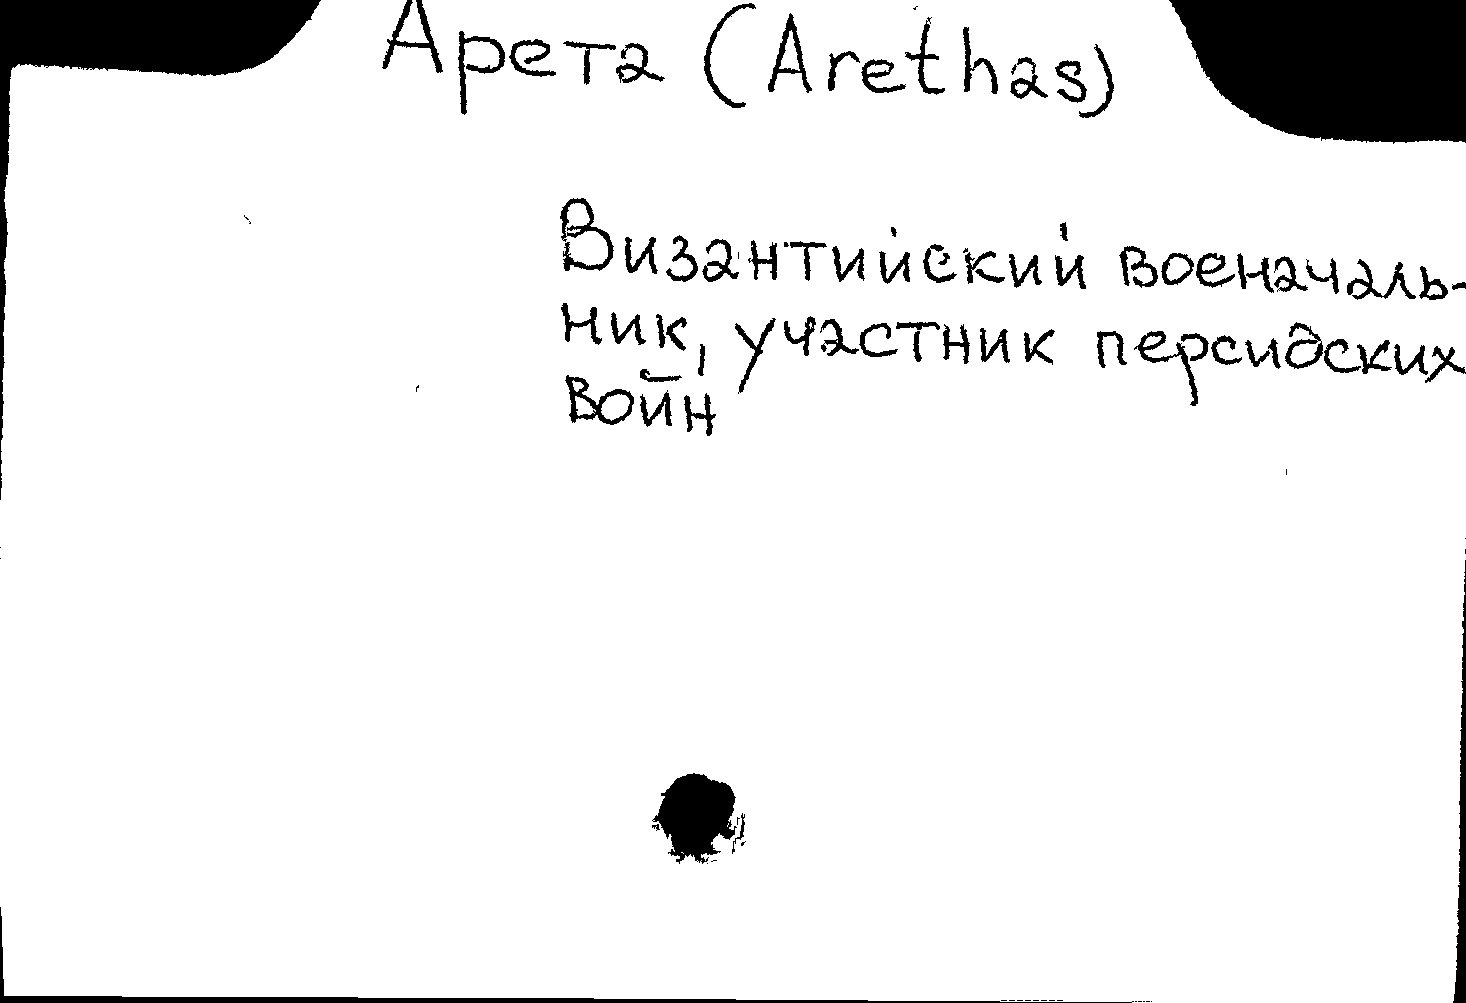 Арета (Arethas)
Византийский военачаль-
ник, участник персидских
войн